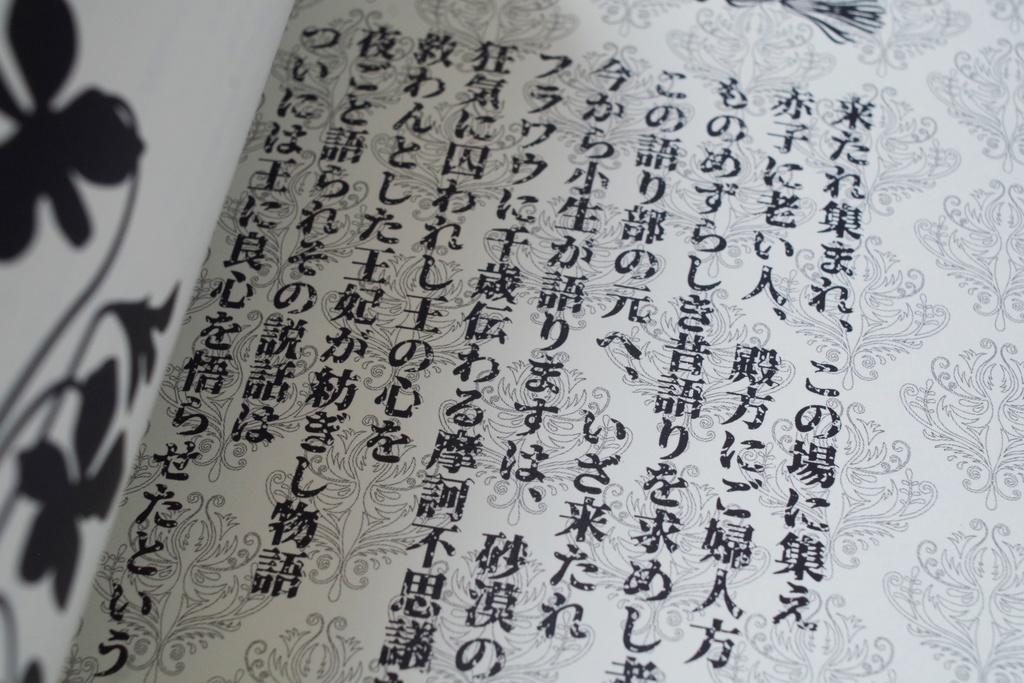 来たれ集まれ、この場に集え
赤子に老い人、殿方にご婦人方
ものめずらしき昔語りを求めし者
この語り部の元へ、いざ来たれ
今から小生が語りますは、砂漠の
フラウウに千歳伝わる摩訶不思議
狂気に囚われし王の心を
救わんとした王妃が紡ぎし物語
夜ごと語られその説話は
ついには王に良心を悟らせたという